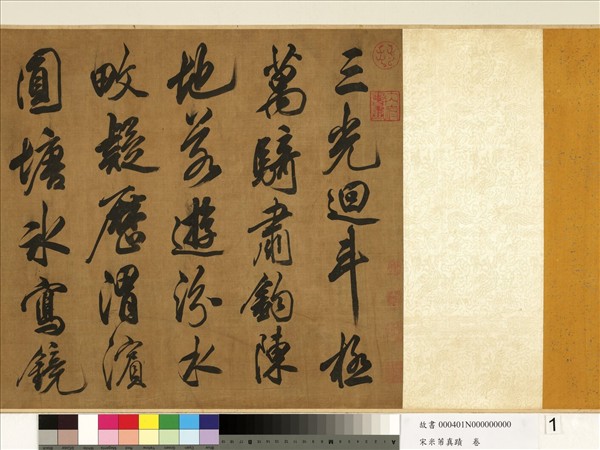 三光迴斗極
萬騎肅鈎陳
地若遊汾水
畋疑歷渭濱
圓塘冰寫鏡
故書 000401N000000000
宋米芾真蹟 卷
1